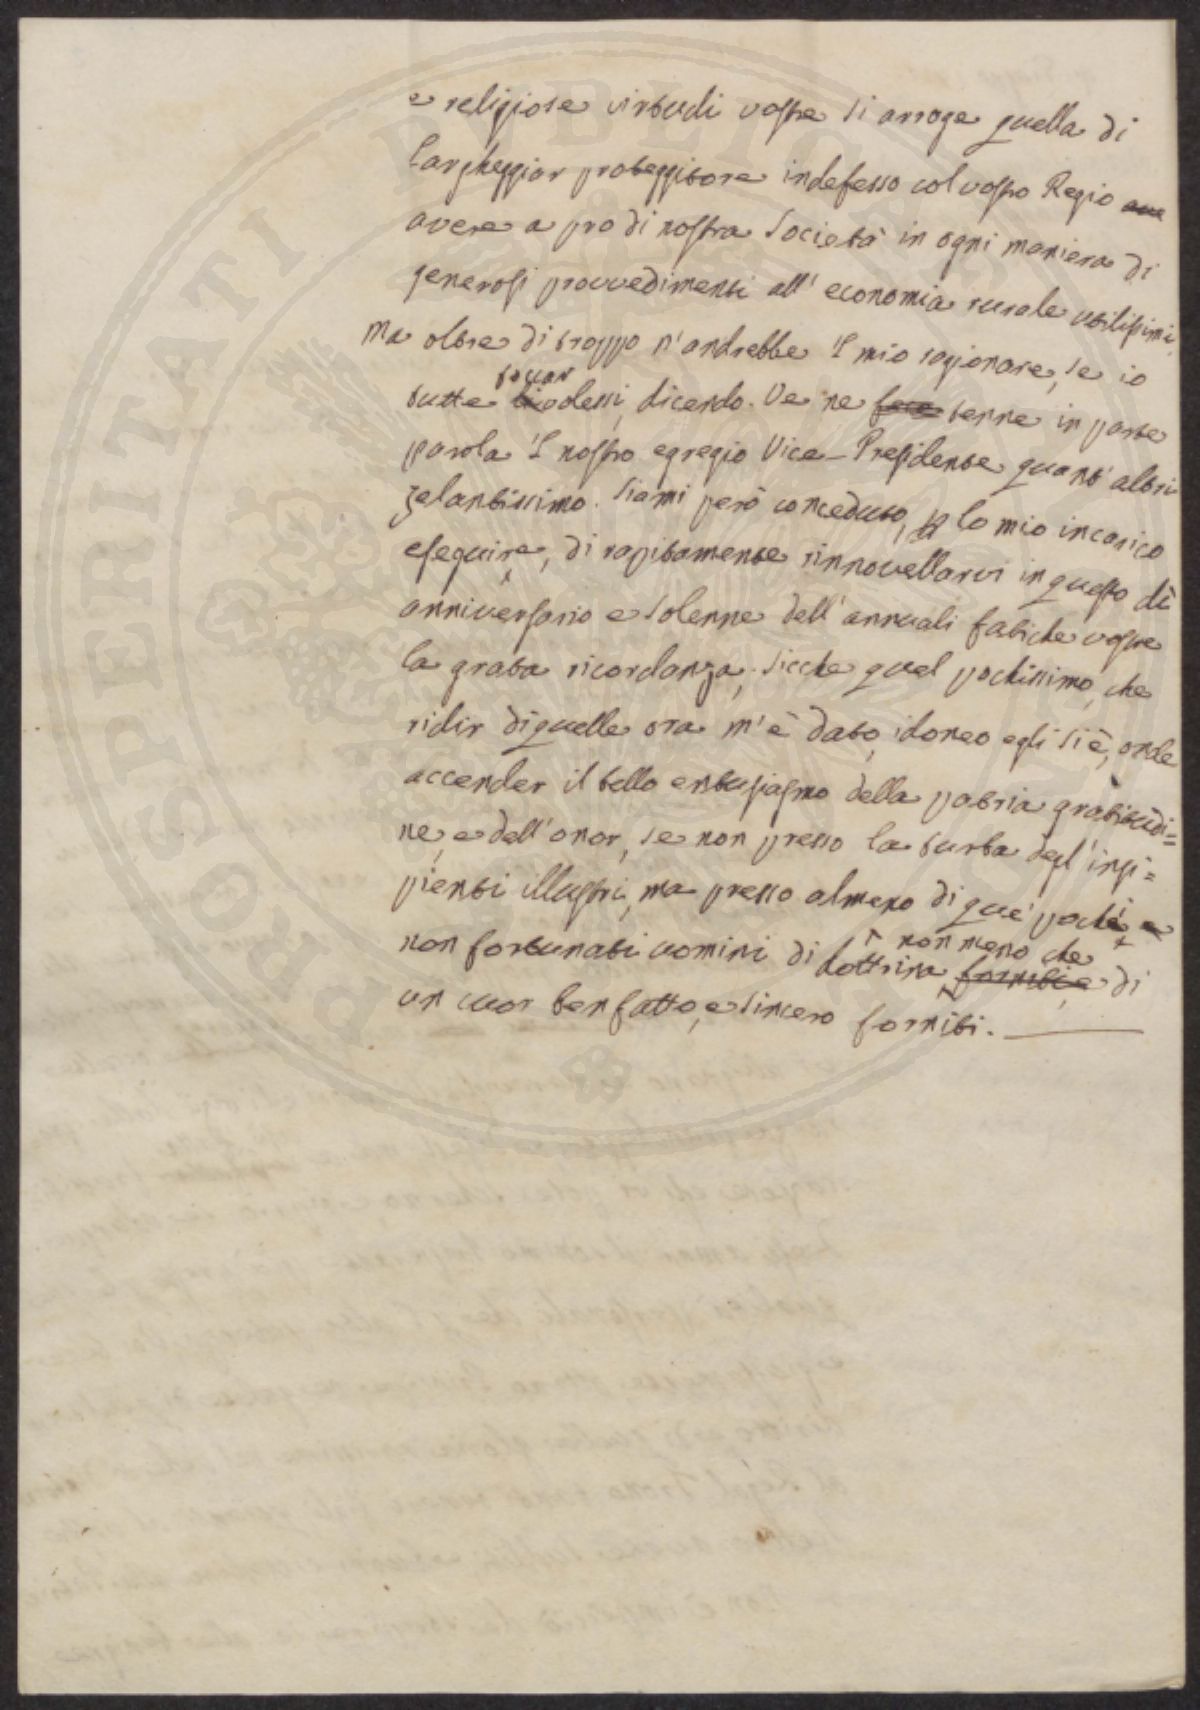 e religiose virtudi vostre si arroge quella di
largheggiar proteggitore indefesso col vostro Regio ave
avere a pro di nostra Società in ogni maniera di
generosi provvedimenti all' economia rurale utilissimi,
ma oltre di troppo n'andrebbe 'l mio ragionare, se io
toccar
tutte dessi, dicendo. Ve ne fece tenne in parte
parola 'l nostro egregio Vice-Presidente quant' altri
zelantissimo. Siami però conceduto, lo mio incarico
eseguire, di rapitamente rinnovellarvi in questo dì
anniversario e solenne dell' annuali fatiche vostre
la grata ricordanza; sicche quel pochissimo, che
ridir di quelle ora m'è dato, idoneo egli siè, onde
accender il bello entusiasmo della patria gratitudi=
ne, e dell'onor, se non presso la turba degl'insi=
pienti illustri, ma presso almeno di que' pochi e
non meno che
non fortunati uomini di dottrina forniti, e di
un cuor ben fatto, e sincero forniti.
PUBLICAE
PROSPERITATI